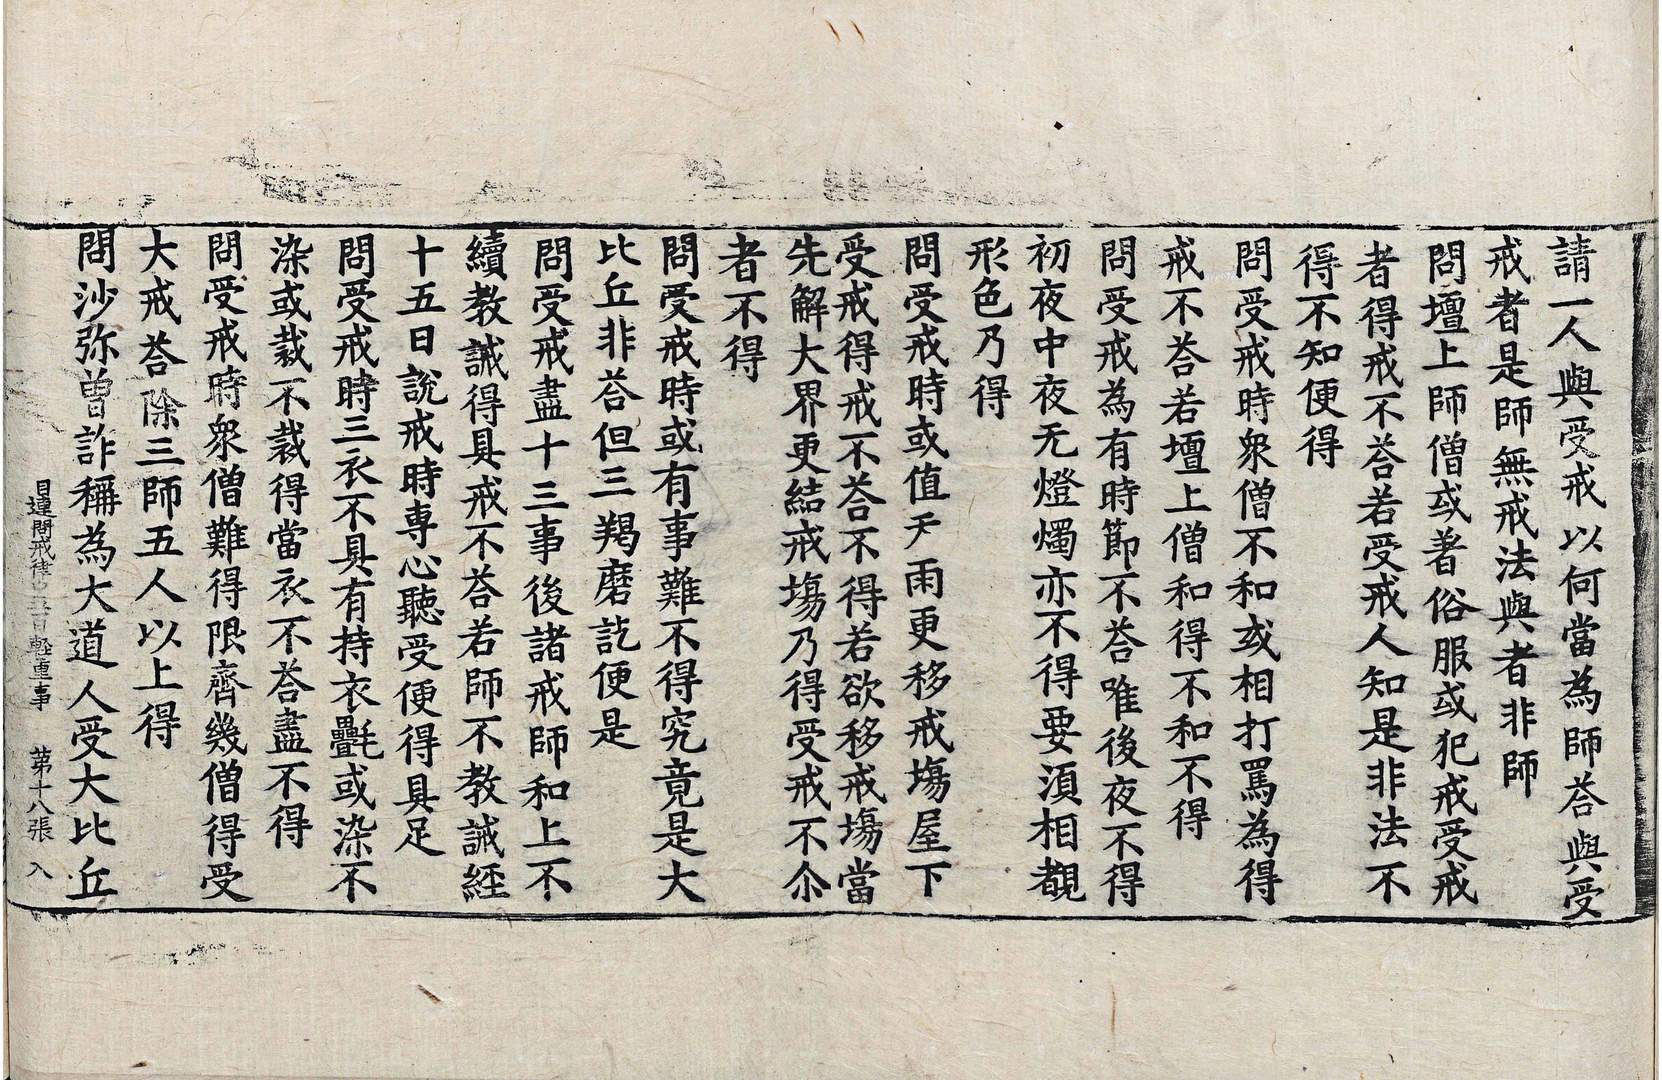 請一人與受戒以何當為師荅與受
戒者是師無戒法與者非師
問壇上師僧或著俗服或犯戒受戒
者得戒不荅若受戒人知是非法不
得不知便得
問受戒時衆僧不和或相打罵為得
戒不荅若壇上僧和得不和不得
問受戒為有時節不荅唯後夜不得
初夜中夜无燈燭亦不得要湏相覩
形色乃得
問受戒時或值天雨更移戒場屋下
受戒得戒不荅不得若欲移戒場當
先解大界更結戒場乃得受戒不尒
者不得
問受戒時或有事難不得究竟是大
比丘非荅但三羯磨訖便是
問受戒盡十三事後諸戒師和上不
續教誡得具戒不荅若師不教誡經
十五日說戒時專心聽受便得具足
問受戒時三衣不具有持衣㲲或染不
染或裁不裁得當衣不荅盡不得
問受戒時衆僧難得限齊幾僧得受
大戒荅除三師五人以上得
問沙弥曽詐稱為大道人受大比丘
目連問戒律中五百輕重事 苐十八張 入